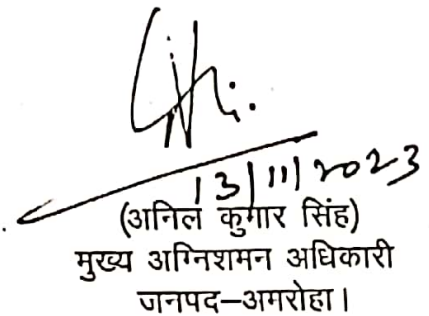 13/11/2023
(अनिल कुगार सिंह)
मुख्य अग्निशमन अधिकारी
जनपद–अमरोहा।